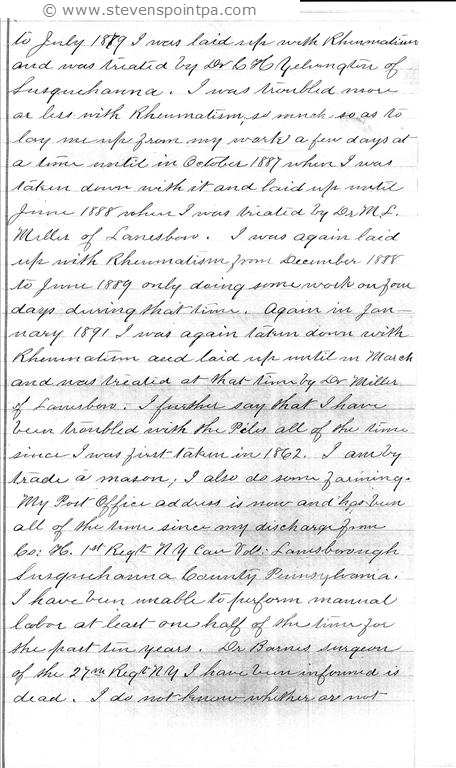 © www.stevenspointpa.com
to July 1879 I was laid up with Rheumatism
and was treated by Dr C H Yelvington of
Susquehanna. I was troubled more
or less with Rheumatism, so much so as to
lay me up from my work a few days at
a time until in October 1887 when I was
taken down with it and laid up until
June 1888 when I was treated by Dr M. L.
Miller of Lanesboro. I was again laid
up with Rheumatism from December 1888
to June 1889 only doing some work on four
days during that time. Again in Jan-
uary 1891 I was again taken down with
Rheumatism and laid up until in March
and was treated at that time by Dr Miller
of Lanesboro. I further say that I have
been troubled with the Piles all of the time
since I was first taken in 1862. I am by
trade a mason; I also do some farming.
My Post Office address is now and has been
all of the time since my discharge from
Co: H. 1st Regt N Y Cav Vols: Lanesborough
Susquehanna County Pennsylvania.
I have been unable to perform manual
labor at least one half of the time for
the past ten years. Dr Barnes surgeon
of the 27th Regt N Y I have been informed is
dead. I do not know whether or not